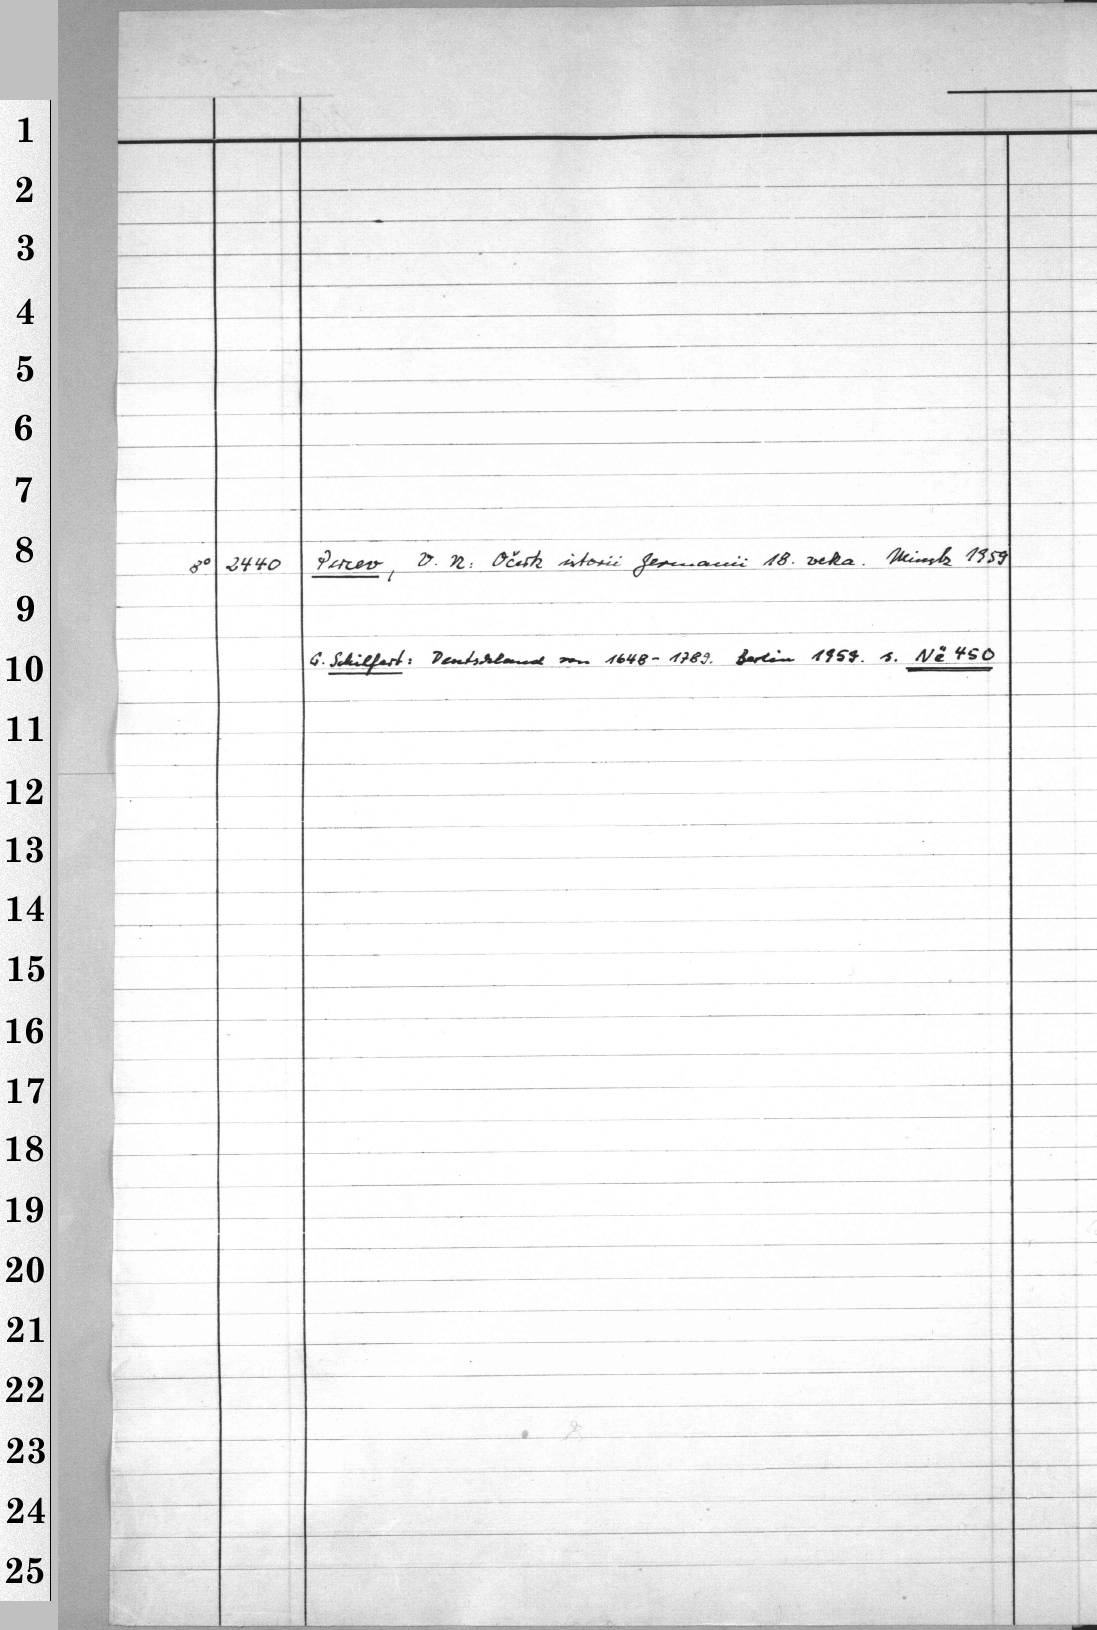 1
2
3
4
5
6
7
8
8° 2440 Percev, V. N.: Očerk istorii Germanii 18. veka. Minsk 1959
9
G. Schilfert: Deutschland von 1648-1789. Berlin 1959. s. Nē 450
10
11
12
13
14
15
16
17
18
19
20
21
22
23
24
25